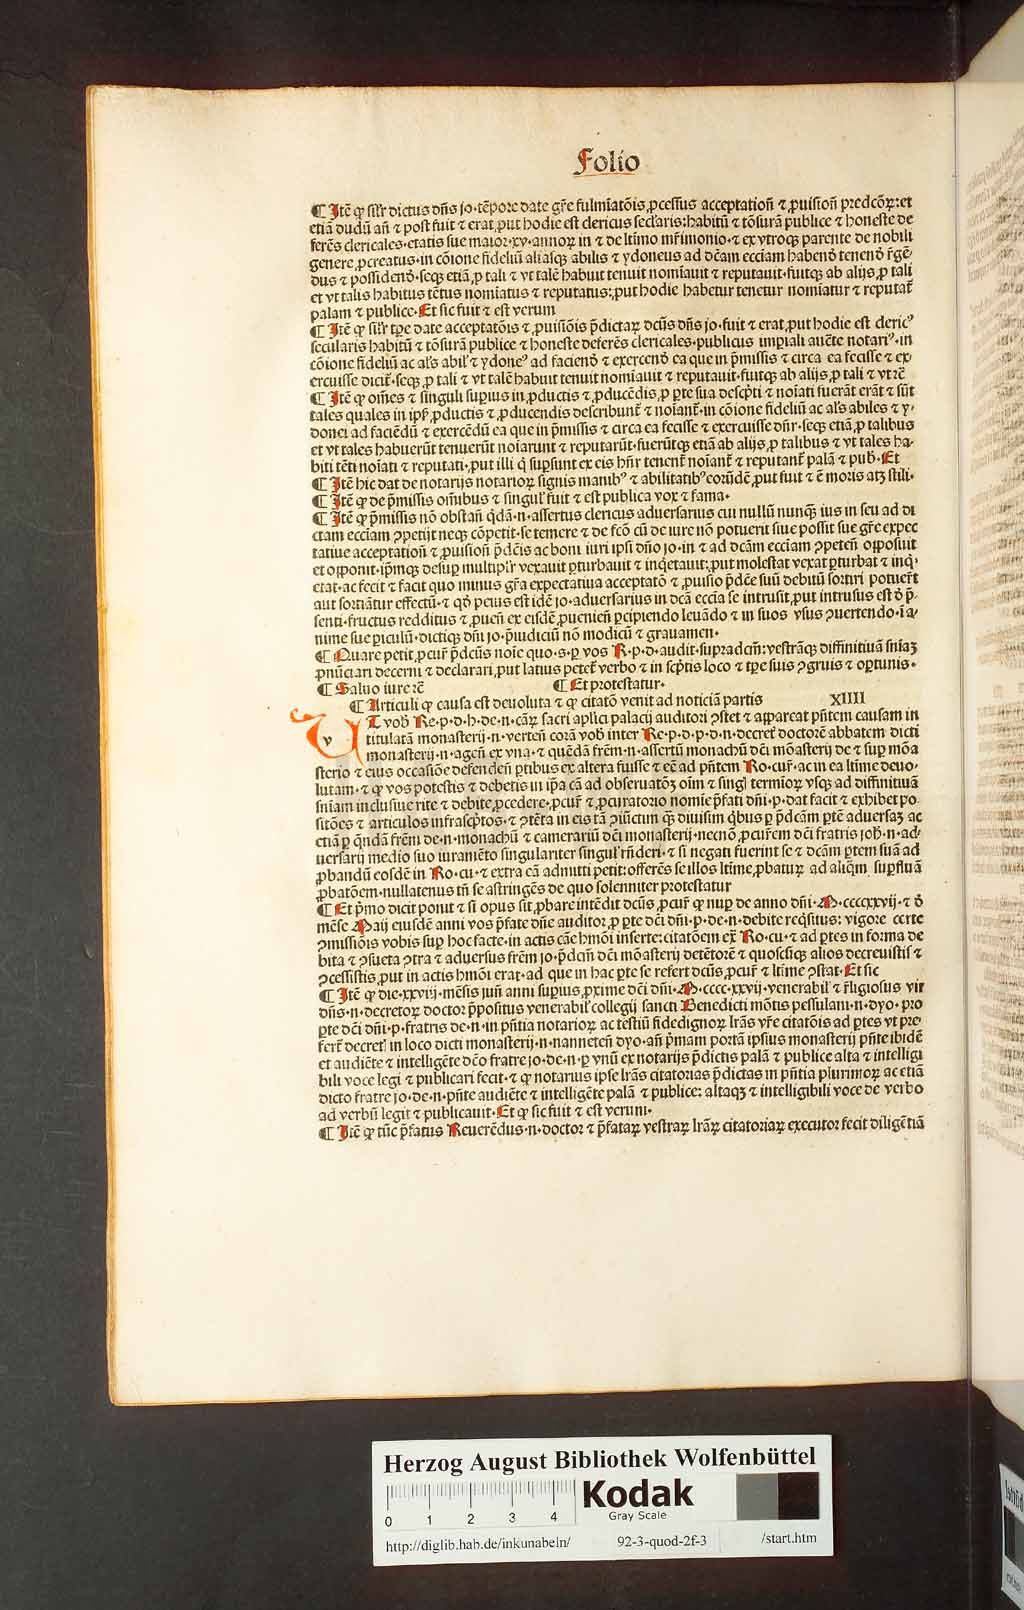 Folio
¶ Itē ꝙ silr̄ dictus dn̄s jo·tēpore date gr̄e fulmīatōis ꝓcessiuꝰ acceptation̄ ⁊ ꝓuision̄ predcōꝝ: et
etiā dudū an̄ ⁊ post fuit ⁊ erat ꝓut hodie est clericus seclaris: habitū ⁊ tōsurā publice ⁊ honeste de
ferēs clericales·etatis sue maior·xv·annoꝝ in ⁊ de ltimo mr̄imonio·⁊ ex vtroqꝫ parente de nobili
genere ꝓcreatus·in cōione fideliū aliasqꝫ abilis ⁊ ydoneus ad dc̄am ecciam habend̄ tenend̄ rḡē
dus ⁊ possidend̄·seqꝫ etiā ꝓ tali ⁊ vt talē habuit tenuit nomīauit ⁊ reputauit·fuitqꝫ ab alijs ꝓ tali
et vt talis habitus tētus nomīatus ⁊ reputatus: ꝓut hodie habetur tenetur nomīatur ⁊ reputat̄
palam ⁊ publice·Et sic fuit ⁊ est verum
¶ Itē ꝙ silr̄ tꝑe date acceptatōis ⁊ ꝓuisiōis p̄dictaꝝ dc̄us dn̄s jo·fuit ⁊ erat ꝓut hodie est dericꝰ
secularis habitū ⁊ tōsurā publice ⁊ honeste deferēs clericales·publicus imꝑiali auc̄te notariꝰ·in
cōione fideliū ac al's abil' ⁊ ydoneꝰ ad faciend̄ ⁊ exercend̄ ea que in p̄missis ⁊ circa ea fecisse ⁊ ex
ercuisse dicit̄·seqꝫ ꝓ tali ⁊ vt talē habuit tenuit nomīauit ⁊ reputauit·fuitqꝫ ab alijs ꝓ tali ⁊ vt rc̄
¶ Itē ꝙ oīnes ⁊ singuli suꝑius in ꝓductis ⁊ ꝓducēdis ꝓ ꝑte sua descp̄ti ⁊ noīati fuerāt erāt ⁊ sūt
tales quales in ipẜ ꝓductis ⁊ ꝓducendis describunt̄ ⁊ noīant̄·in cōione fideliū ac al's abiles ⁊ y·
donei ad faciēdū ⁊ exercēdū ea que in p̄missis ⁊ circa ea fecisse ⁊ exercuisse dn̄r·seqꝫ etiā ꝓ talibus
et vt tales habuerūt tenuerūt noīarunt ⁊ reputarūt·fuerūtqꝫ etiā ab alijs ꝓ talibus ⁊ vt tales ha·
biti tēti noīati ⁊ reputati·ꝓut illi q̄ suꝑsunt ex eis hn̄r tenent̄ noīant̄ ⁊ reputant̄ palā ⁊ pub·Et
¶ Itē hic dat de notarijs notarioꝝ signis manibꝰ ⁊ abilitatibꝰ eorūdē ꝓut fuit ⁊ ē moris atqꝫ stili·
¶ Itē ꝙ de p̄missis oīnibus ⁊ singul' fuit ⁊ est publica vox ⁊ fama·
¶ Itē ꝙ p̄missis nō obstan̄ q̄dā·n·assertus clericus aduersarius cui nullū nunqꝫ ius in seu ad di
ctam ecciam ꝯpetijt neqꝫ cōpetit·se temere ⁊ de fcō cū de iure nō potuerit siue possit sue gr̄e expec
tatiue acceptation̄ ⁊ ꝓuision̄ p̄dc̄is ac boni iuri ipsi dn̄o jo·in ⁊ ad dc̄am ecciam ꝯpeten̄ opposuit
et opponit·ip̄mqꝫ desuꝑ multiplr̄ vexauit ꝑturbauit ⁊ inq̄etauit: ꝓut molestat vexat ꝑturbat ⁊ inq̄·
etat·ac fecit ⁊ facit quo minus gr̄a expectatiua acceptatō ⁊ ꝓuisio p̄dcē suū debitū sortiri potuer̄t
aut sortiātur effectū·⁊ qd̄ peius est idē jo·aduersarius in dcā eccia se intrusit ꝓut intrusus est d̄ p̄·
senti·fructus redditus ⁊ ꝓuen̄ ex eisdē ꝓuenien̄ ꝑcipiendo leuādo ⁊ in suos vsus ꝯuertendo·ī a·
nime sue ꝑiculū·dictiqꝫ dn̄i jo·p̄iudiciū nō modicū ⁊ grauamen·
¶ Quare petit ꝓcur̄ p̄dcūs noīe quo·s·ꝑ vos R·p·d·audit·supradcm̄: vestrāqꝫ diffinitiuā sn̄iaꝫ
ꝓnūciari decerni ⁊ declarari ꝓut latius petet̄ verbo ⁊ in scp̄tis loco ⁊ tꝑe suis ꝯgruis ⁊ oꝑtunis·
¶ Saluo iure rc̄ ¶ Et protestatur·
¶ Articuli ꝙ causa est deuoluta ⁊ ꝙ citatō venit ad noticiā partis XIIII
v T vob̄ Re·p·d·h·de·n·cāꝝ sacri apl̄ici palacij auditori ꝯstet ⁊ appareat pn̄tem causam in
titulatā monasterij·n·verten̄ corā vob̄ inter Re·p·d·p·d·n·decret̄ doctorē abbatem dicti
monasterij·n·agen̄ ex vna·⁊ quēdā frēm·n·assertū monachū dc̄i mōasterij de ⁊ suꝑ mōa
sterio ⁊ eius occasiōe defenden̄ ꝑtibus ex altera fuisse ⁊ eē ad pn̄tem Ro·cur̄·ac in ea ltime deuo·
lutam·⁊ ꝙ vos potestis ⁊ debetis in ip̄a cā ad obseruatōꝫ oīm ⁊ singl̄ termioꝝ vsqꝫ ad diffinitiuā
sn̄iam inclusiue rite ⁊ debite ꝓcedere·ꝓcur̄ ⁊ ꝓcuratorio nomie p̄fati dn̄i·p·dat facit ⁊ exhibet po·
sitōes ⁊ articulos infrascp̄tos·⁊ ꝯtēta in eis tā ꝯiūctim qꝫ diuisim q̄bus ꝑ p̄dcām ꝑtē aduersaꝫ ac
etiā ꝑ q̄ndā frēm de·n·monachū ⁊ camerariū dc̄i monasterij·necnō ꝓcurēm dc̄i fratris joh̄·n·ad·
uersarij medio suo iuramēto singulariter singul' rn̄deri·⁊ si negati fuerint se ⁊ dcām ꝑtem suā ad
ꝓbandū eosdē in Ro·cu·⁊ extra eā admitti petit: offerēs se illos ltime ꝓbatuꝝ ad aliq̄m suꝑfluā
ꝓbatōem·nullatenus tn̄ se astringēs de quo solenniter protestatur
¶ Et p̄mo dicit ponit ⁊ si opus sit ꝓbare intēdit dcūs ꝓcur̄ ꝙ nuꝑ de anno dn̄i·M·ccccxxvij·⁊ d̄
mēse Maij eiusdē anni vos p̄fate dn̄e auditor ꝓ ꝑte dc̄i dn̄i·p·de·n·debite reqsitus: vigore certe
ꝯmissiōis vobis suꝑ hoc facte·in actis cāe hmōi inserte: citatōem ex̄ Ro·cu·⁊ ad ꝑtes in forma de
bita ⁊ ꝯsueta ꝯtra ⁊ aduersus frēm jo·p̄dcm̄ dc̄i mōasterij detētorē ⁊ quoscūqꝫ alios decreuistis ⁊
ꝯcessistis ꝓut in actis hmōi erat·ad que in hac ꝑte se refert dcūs ꝓcur̄ ⁊ ltime ꝯstat·Et sic
¶ Itē ꝙ die·xxviij·mēsis jun̄ anni suꝑius ꝓxime dc̄i dn̄i·M·cccc·xxvij·venerabil' ⁊ r̄ligiosus vir
dn̄s·n·decretoꝝ doctor p̄positus venerabil' collegij sancti Benedicti mōtis pessulani·n·dyo·pro
ꝑte dc̄i dn̄i·p·fratris de·n·in pn̄tia notarioꝝ ac testiū fidedignoꝝ lr̄as vr̄e citatōis ad ꝑtes vt pre
fert̄ decret̄ in loco dicti monasterij·n·nanneten̄ dyo·an̄ p̄mam portā ipsius monasterij pn̄te ibidē
et audiēte ⁊ intelligēte dcō fratre jo·de·n·ꝑ vnū ex notarijs p̄dictis palā ⁊ publice alta ⁊ intelligi
bili voce legi ⁊ publicari fecit·⁊ ꝙ notarius ipse lr̄as citatorias p̄dictas in pn̄tia plurimoꝝ ac etiā
dicto fratre jo·de·n·pn̄te audiēte ⁊ intelligēte palā ⁊ publice: altaqꝫ ⁊ intelligibili voce de verbo
ad verbū legit ⁊ publicauit·Et ꝙ sic fuit ⁊ est verum·
¶ Itē ꝙ tūc p̄fatus Reuerēdus·n·doctor ⁊ p̄fataꝝ vestraꝝ lr̄aꝝ citatoriaꝝ executor fecit diligētiā
Herzog August Bibliothek Wolfenbüttel
0 1 2 3 4
Kodak
Gray Scale
http://diglib.hab.de/inkunabeln/ 92-3-quod-2f-3 /start.htm